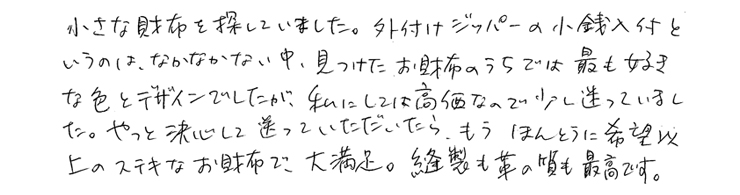 小さな財布を探していました。外付けジッパーの小銭入付と
いうのは、なかなかない中、見つけたお財布のうちでは最も好き
な色とデザインでしたが、私にしては高価なので少し迷っていまし
た。やっと決心して送っていただいたら、もうほんとうに希望以
上のステキなお財布で、大満足。縫製も革の質も最高です。